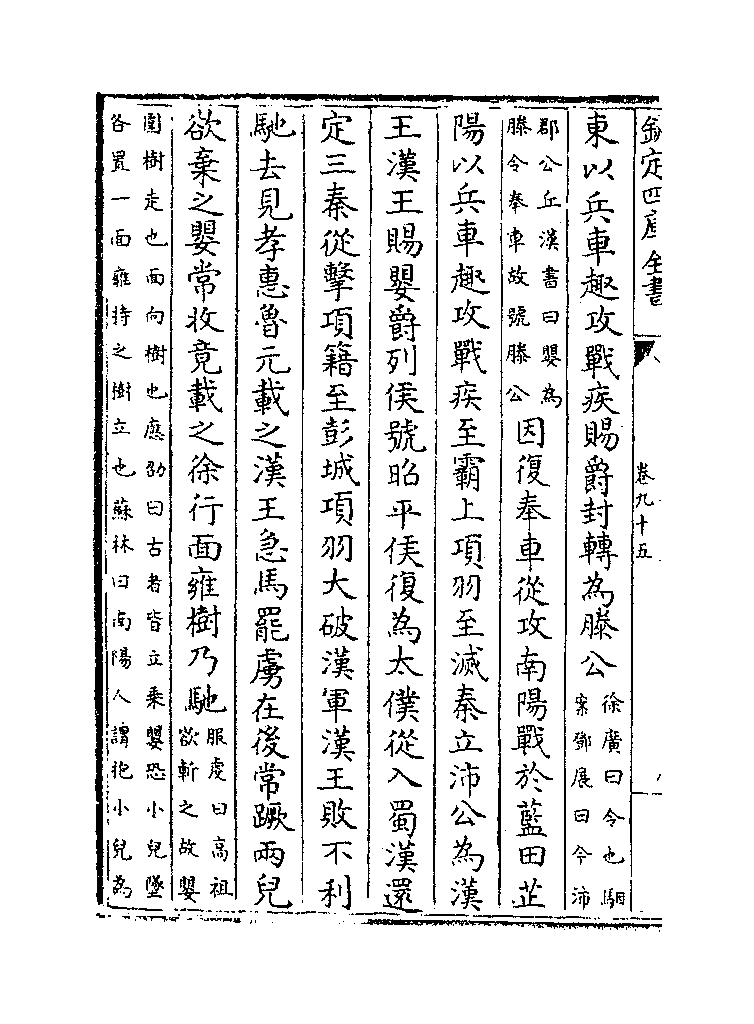 欽定四庫全書
卷九十五
東以兵車趣攻戰疾賜爵封轉為滕公
徐廣曰令也駰
案鄧展曰今沛
郡公丘漢書曰嬰為
滕令奉車故號滕公
因復奉車從攻南陽戰於藍田芷
陽以兵車趣攻戰疾至霸上項羽至滅秦立沛公為漢
王漢王賜嬰爵列侯號昭平侯復為太僕從入蜀漢還
定三秦從擊項籍至彭城項羽大破漢軍漢王敗不利
馳去見孝惠魯元載之漢王急馬罷虜在後常蹶兩兒
欲棄之嬰常收竟載之徐行面雍樹乃馳
服虔曰高祖
欲斬之故嬰
圍樹走也面向樹也應劭曰古者皆立乘嬰恐小兒墜
各置一面雍持之樹立也蘇林曰南陽人謂抱小兒為